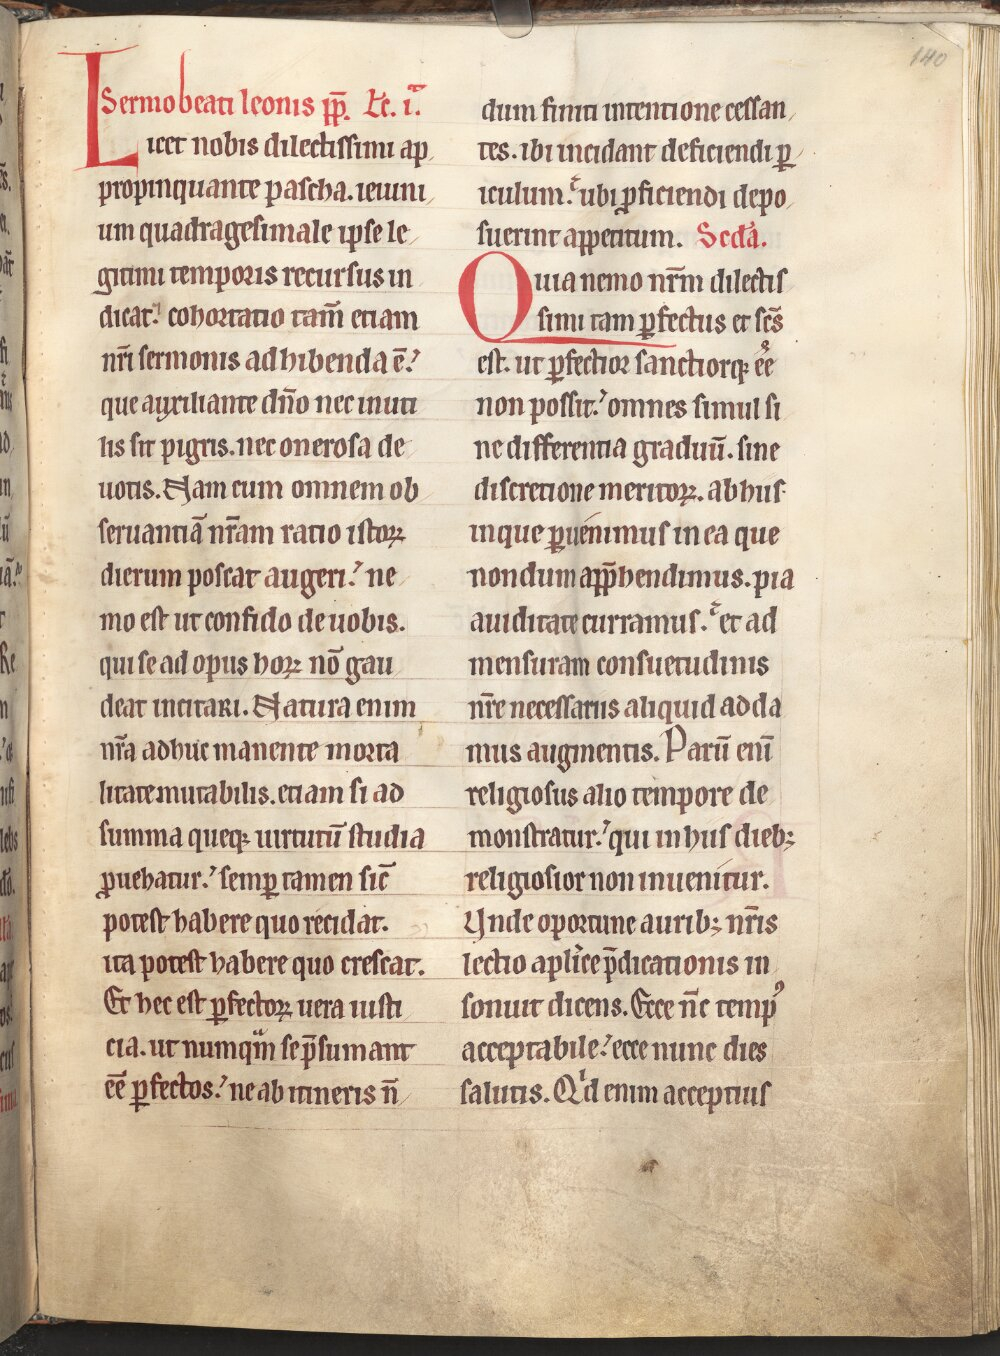 140
Sermo beati leonis pp̄. Lc̄. i.ᵃ
Licet nobis dilectissimi ap
propinquante pascha. ieiuni
um quadragesimale ipse le
gitimi temporis recursus in
dicat. cohortatio tam̄ etiam
nr̄i sermonis adhibenda ē.
que auxiliante dn̄o nec inuti
lis sit pigris. nec onerosa de
uotis. Nam cum omnem ob
seruantiā nr̄am ratio istoꝝ
dierum poscat augeri. ne
mo est ut confido de uobis.
qui se ad opus hoꝝ nō gau
deat incitari. Natura enim
nr̄a adhuc manente morta
litate mutabilis. etiam si ad
summa queqꝫ uirtutū studia
ꝓuehatur. semꝑ tamen sic̄
potest habere quo recidat.
ita potest habere quo crescat.
Et hec est ꝑfectoꝝ uera iusti
cia. ut numqͣm se p̄sumant
eē ꝑfectos. ne ab itineris n̄
dum finiti intentione cessan
tes. ibi incidant deficiendi ꝑ
iculum. ubi ꝓficiendi depo
suerint appetitum. Scd̄a.
Quia nemo nr̄m dilectis
simi tam ꝑfectus et sc̄s
est. ut ꝑfectior sanctiorqꝫ eē
non possit. omnes simul si
ne differentia graduū. sine
discretione meritoꝝ. ab hus
inque ꝑuenimus in ea que
nondum app̄hendimus. pia
auiditate curramus. et ad
mensuram consuetudinis
nr̄e necessariis aliquid adda
mus augmentis. Parū eni̅
religiosus alio tempore de
monstratur. qui in hus diebꝫ
religiosior non inuenitur.
Vnde oportune auribꝫ nr̄is
lectio aplice p̄dicationis in
sonuit dicens. Ecce nc̄ tempꝰ
acceptabile. ecce nunc dies
salutis. Qͥd enim acceptius